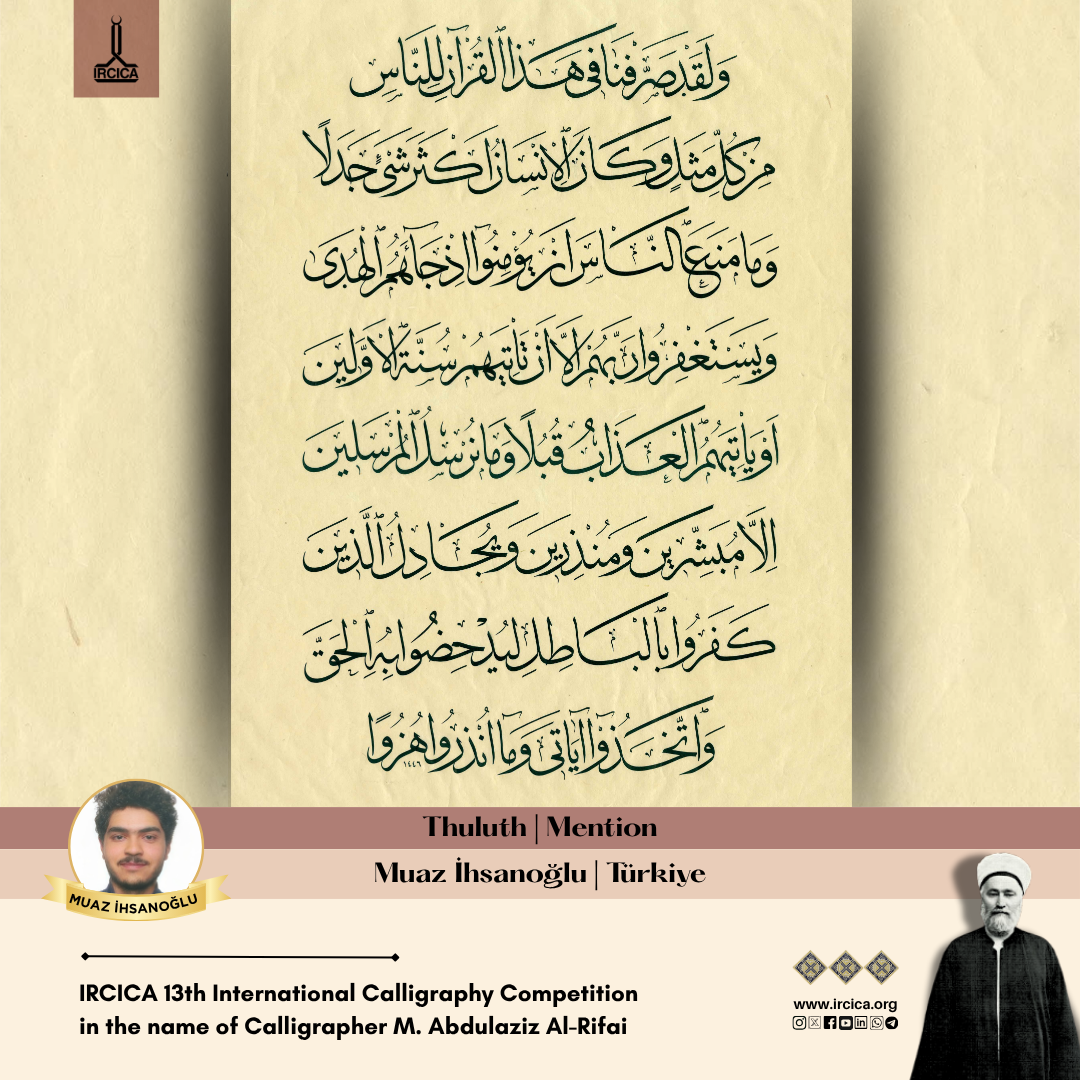 IRCICA
وَلَقَدْ صَرَّفْنَا فِى هٰذَا الْقُرْآنِ لِلنَّاسِ
مِنْ كُلِّ مَثَلٍ وَكَانَ الْاِنْسَانُ اَكْثَرَ شَىْءٍ جَدَلًا
وَمَا مَنَعَ النَّاسَ اَنْ يُؤْمِنُوا اِذْ جَاۤءَهُمُ الْهُدٰى
وَيَسْتَغْفِرُوا رَبَّهُمْ اِلَّا اَنْ تَأْتِيَهُمْ سُنَّةُ الْاَوَّلِينَ
اَوْ يَأْتِيَهُمُ الْعَذَابُ قُبُلًا وَمَا نُرْسِلُ الْمُرْسَلِينَ
اِلَّا مُبَشِّرِينَ وَمُنْذِرِينَ وَيُجَادِلُ الَّذِينَ
كَفَرُوا بِالْبَاطِلِ لِيُدْحِضُوا بِهِ الْحَقَّ
وَاتَّخَذُوۤا اٰيَاتِى وَمَاۤ اُنْذِرُوا هُزُوًا
١٤٤٦
Thuluth | Mention
Muaz İhsanoğlu | Türkiye
MUAZ İHSANOĞLU
IRCICA 13th International Calligraphy Competition
in the name of Calligrapher M. Abdulaziz Al-Rifai
www.ircica.org